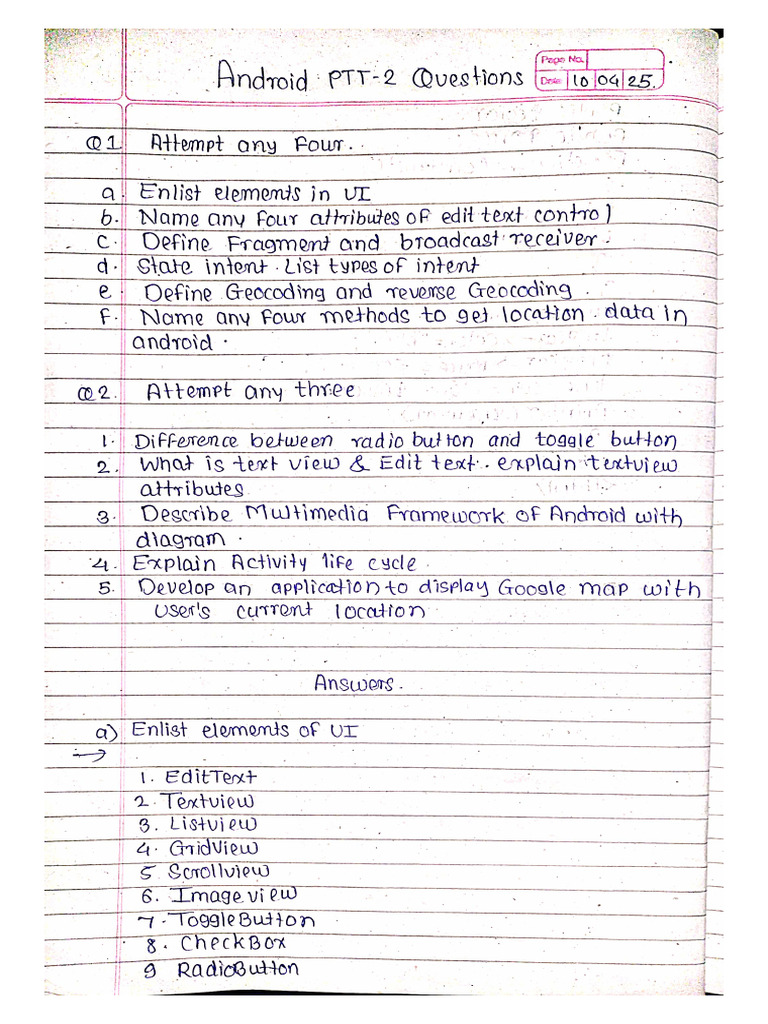 Android PTT-2 Questions
Page No.
Date 10 04 25.
Q1 Attempt any Four.
a. Enlist elements in UI
b. Name any four attributes of edit text control
c. Define Fragment and broadcast receiver.
d. State intent. List types of intent
e. Define Geocoding and reverse Geocoding.
f. Name any four methods to get location data in
android.
Q2. Attempt any three
1. Difference between radio button and toggle button
2. What is text view & Edit text. explain textview
attributes
3. Describe Multimedia Framework of Android with
diagram.
4. Explain Activity life cycle.
5. Develop an application to display Google map with
user's current location
Answers.
a) Enlist elements of UI
→
1. EditText
2. Textview
3. Listview
4. GridView
5 Scrollview
6. Imageview
7. ToggleButton
8. CheckBox
9 RadioButton